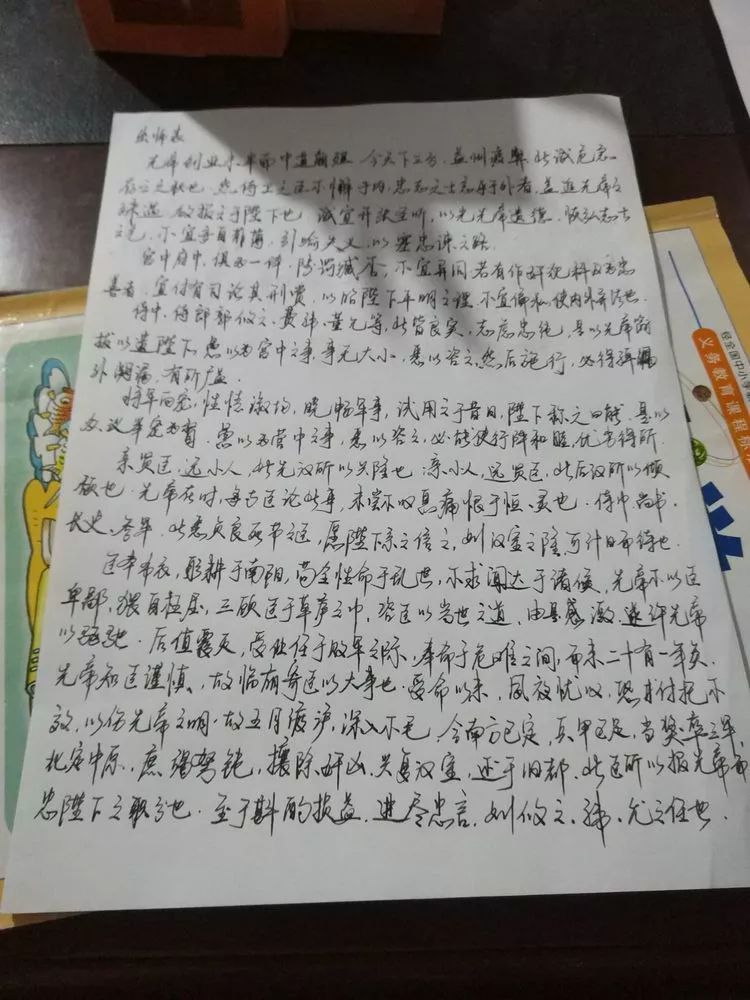 出师表
先帝创业未半而中道崩殂，今天下三分，益州疲弊，此诚危急
存亡之秋也。然侍卫之臣不懈于内，忠志之士忘身于外者，盖追先帝之
殊遇，欲报之于陛下也。诚宜开张圣听，以光先帝遗德，恢弘志士
之气，不宜妄自菲薄，引喻失义，以塞忠谏之路。
宫中府中，俱为一体，陟罚臧否，不宜异同，若有作奸犯科及为忠
善者，宜付有司论其刑赏，以昭陛下平明之理，不宜偏私，使内外异法也。
侍中、侍郎郭攸之、费祎、董允等，此皆良实，志虑忠纯，是以先帝简
拔以遗陛下，愚以为宫中之事，事无大小，悉以咨之，然后施行，必得裨
补阙漏，有所广益。
将军向宠，性情淑均，晓畅军事，试用之于昔日，陛下称之曰能，是以
众议举宠为督，愚以为营中之事，悉以咨之，必能使行阵和睦，优劣得所。
亲贤臣，远小人，此先汉所以兴隆也，亲小人，远贤臣，此后汉所以倾
颓也。先帝在时，每与臣论此事，未尝不叹息痛恨于桓、灵也。侍中、尚书、
长史、参军，此悉贞良死节之臣，愿陛下亲之信之，则汉室之隆，可计日而待也。
臣本布衣，躬耕于南阳，苟全性命于乱世，不求闻达于诸侯，先帝不以臣
卑鄙，猥自枉屈，三顾臣于草庐之中，咨臣以当世之道，由是感激，遂许先帝
以驱驰。后值覆灭，受任于败军之际，奉命于危难之间，尔来二十有一年矣。
先帝知臣谨慎，故临崩寄臣以大事也。受命以来，夙夜忧叹，恐付托不
效，以伤先帝之明，故五月渡泸，深入不毛，今南方已定，兵甲已足，当奖率三军，
北定中原，庶竭驽钝，攘除奸凶，兴复汉室，还于旧都，此臣所以报先帝而
忠陛下之职分也。至于斟酌损益，进尽忠言，则攸之、祎、允之任也。
经全国中小
义务教育课程标